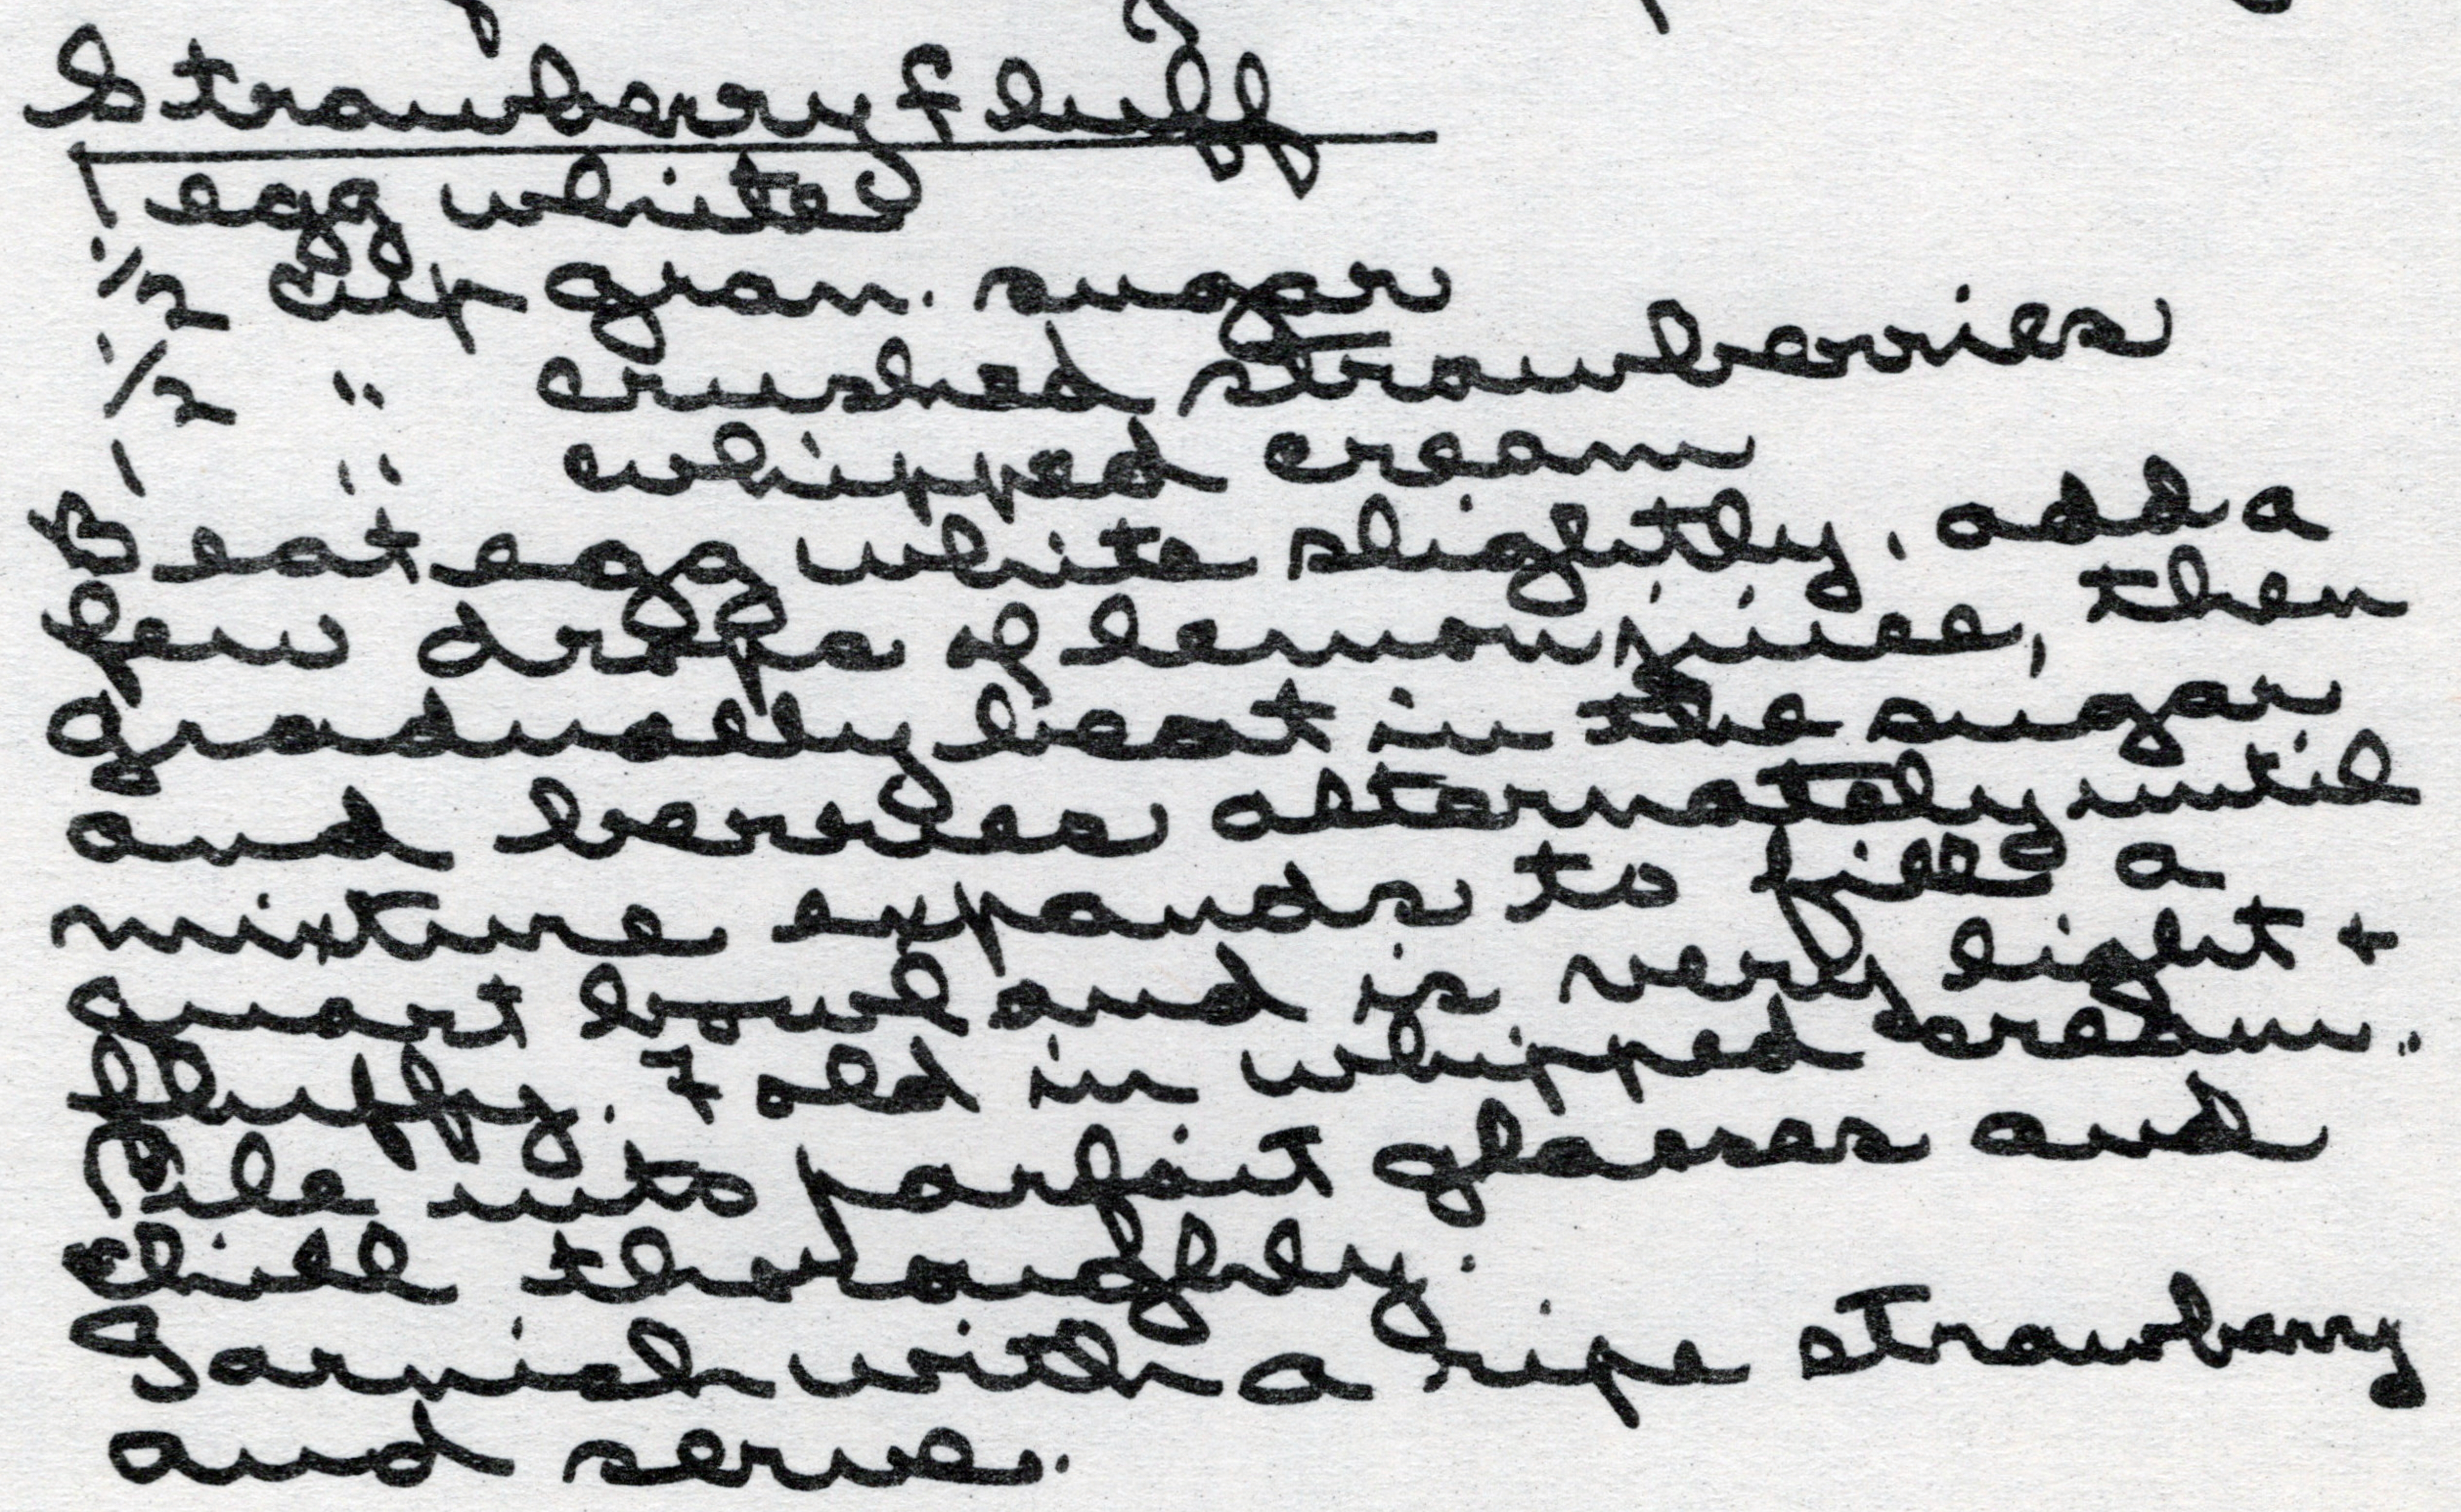 Strawberry fluff
1 egg white
1/2 cup gran. sugar
1/2 " crushed strawberries
1 " whipped cream
Beat egg white slightly, add a
few drops of lemon juice, then
gradually beat in the sugar
and berries alternately until
mixture expands to fill a
quart bowl and is very light +
fluffy. Fold in whipped cream.
Pile into parfait glasses and
chill thoroughly.
Garnish with a ripe strawberry
and serve.